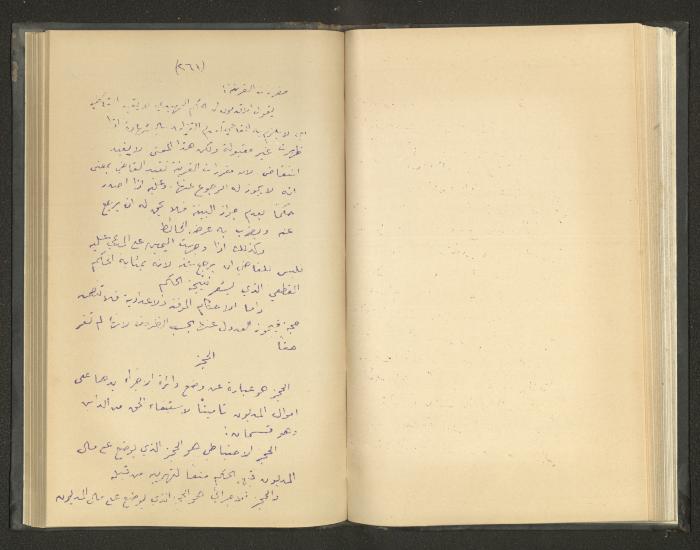 (٢٦١)
مقررات القرينة:
يقول الاقدمون ان الحكم التمهيدي لا يقيد القاضي
لا يلزم به القاضي
ظهرت غير مقبولة ولكن هذا المعنى لا يفيد
انتقاض لان مقررات القرينة تقيد القاضي بمعنى
انه لا يجوز له الرجوع عنها. وعليه اذا اصدر
حكما بعدم جواز البينة فلا يحق له ان يرجع
عنه ويضرب به عرض الحائط
وكذلك اذا وجهت اليمين على المدعى عليه
فليس للقاضي ان يرجع عنه لانه بمثابة الحكم
القطعي الذي يشعر بنتيجة الحكم
واما الاحكام المرفقة والاعدادية فلا تتضمن
حجة فيجوز العدول عنها بحسب الظروف لانها لم تقرر
حقا
الحجز
الحجز هو عبارة عن وضع دائرة الاجراء يدها على
اموال المديون تأمينا لاستيفاء الحق من الدائن
وهو قسمان:
الحجز الاحتياطي هو الحجز الذي يوضع على مال
المديون قبل الحكم منعا لتهريبه من قبله
والحجز الاجرائي هو الحجز الذي يوضع على مال المديون